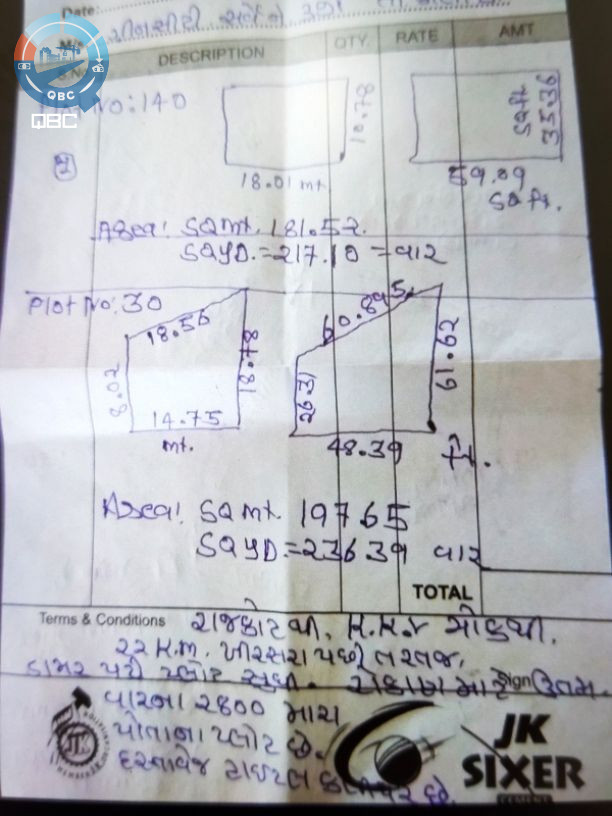 Date:
M/s.
QTY. RATE AMT
DESCRIPTION
QBC
QBC
No: 140
10.78
sqft
35.36
18.01 mt
59.09
sqft.
Area: SQ mt. 181.52
SQYD. = 217.10 = વાર
Plot No: 30
18.56
60.895
8.02
18.78
26.31
61.62
14.75
mt.
48.39 ft.
Area: SQ mt. 197.65
SQYD. = 236.39 વાર
TOTAL
Terms & Conditions રાજકોટ થી,
22 K.M. ખીરસરા પછી તરતજ,
ડામર પટી પ્લોટ સુધી. રોકાણ માટે ઉત્તમ
Sign
વારના 2800 માત્ર
પોતાના પ્લોટ છે.
દસ્તાવેજ ટાઇટલ છે.
JK
SIXER
CEMENT